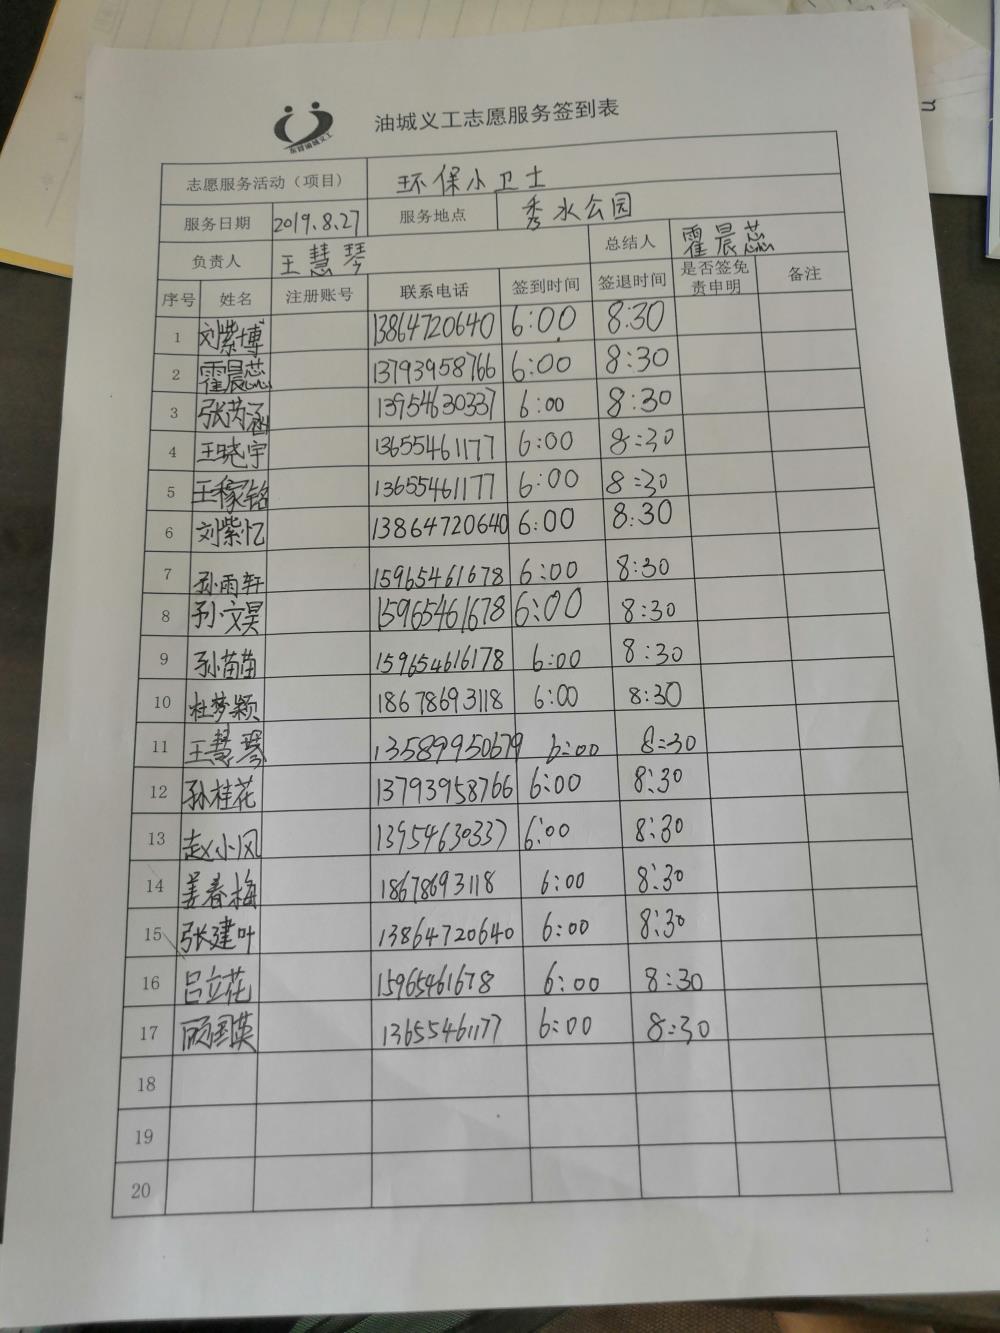 油城义工志愿服务签到表
东营油城义工
志愿服务活动（项目） 环保小卫士
服务日期 2019.8.27 服务地点 秀水公园
负责人 王慧琴 总结人 霍晨蕊
序号 姓名 注册账号 联系电话 签到时间 签退时间 是否签免责申明 备注
1 刘紫博 13864720640 6:00 8:30
2 霍晨蕊 13793958766 6:00 8:30
3 张芮涵 13954630337 6:00 8:30
4 王晓宇 13655461177 6:00 8:30
5 王稼铭 13655461177 6:00 8:30
6 刘紫忆 13864720640 6:00 8:30
7 孙雨轩 15965461678 6:00 8:30
8 孙文昊 15965461678 6:00 8:30
9 孙苗苗 159654616178 6:00 8:30
10 杜梦颖 18678693118 6:00 8:30
11 王慧琴 13589950679 6:00 8:30
12 孙桂花 13793958766 6:00 8:30
13 赵小风 13954630337 6:00 8:30
14 姜春梅 18678693118 6:00 8:30
15 张建叶 13864720640 6:00 8:30
16 吕立花 15965461678 6:00 8:30
17 顾国英 13655461177 6:00 8:30
18
19
20